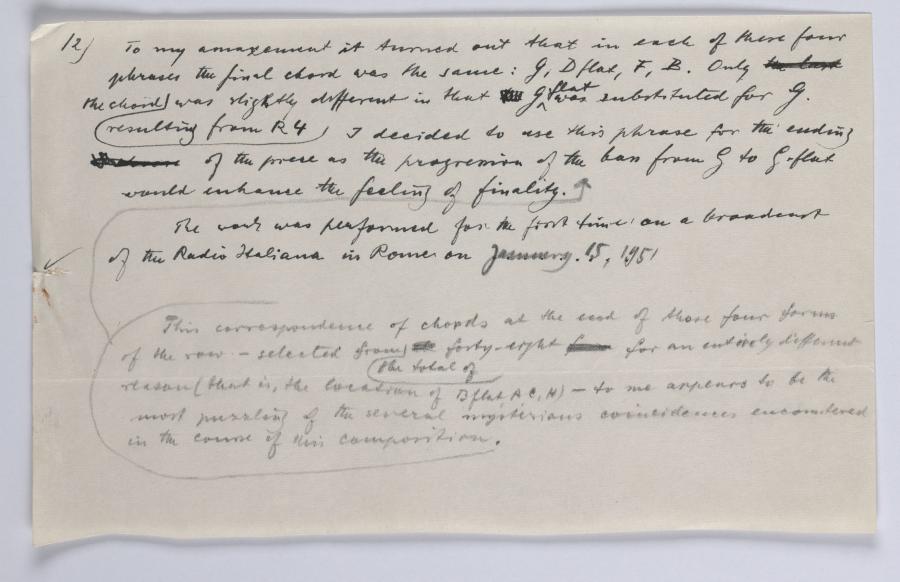 12)
To my amazement it turned out that in each of these four
phrases the final chord was the same: G, D flat, F, B. Only the last
the chord was slightly different in that G flat was substituted for G.
resulting from R 4 I decided to use this phrase for the ending
of the piece as the progression of the bass from G to G-flat
would enhance the feeling of finality.
The work was performed for the first time on a broadcast
of the Radio Italiana in Rome on January 15, 1951
This correspondence of chords at the end of those four forms
of the row - selected from forty-eight for an entirely different
the total of
reason (that is, the location of B flat A C, H) - to me appears to be the
most puzzling of the several mysterious coincidences encountered
in the course of this composition.